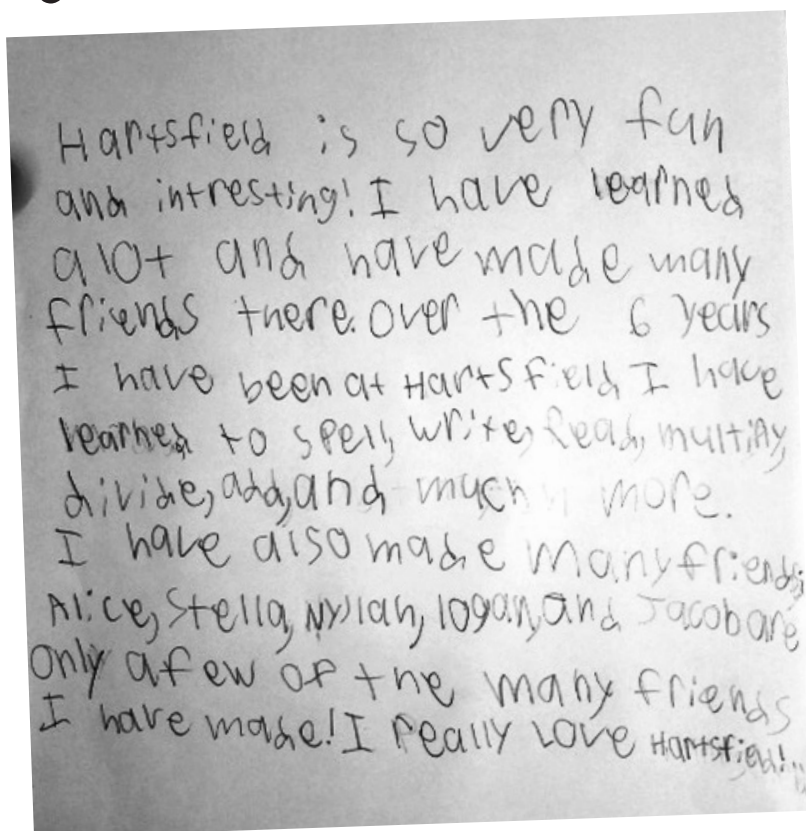 Hartsfield is so very fun
and intresting! I have learned
a lot and have made many
friends there. Over the 6 years
I have been at Hartsfield I have
learned to spell, write, read, multiply,
divide, add, and much more.
I have also made many friends
Alice, Stella, Nyilah, logan, and Jacob are
only a few of the many friends
I have made! I really love Hartsfield!